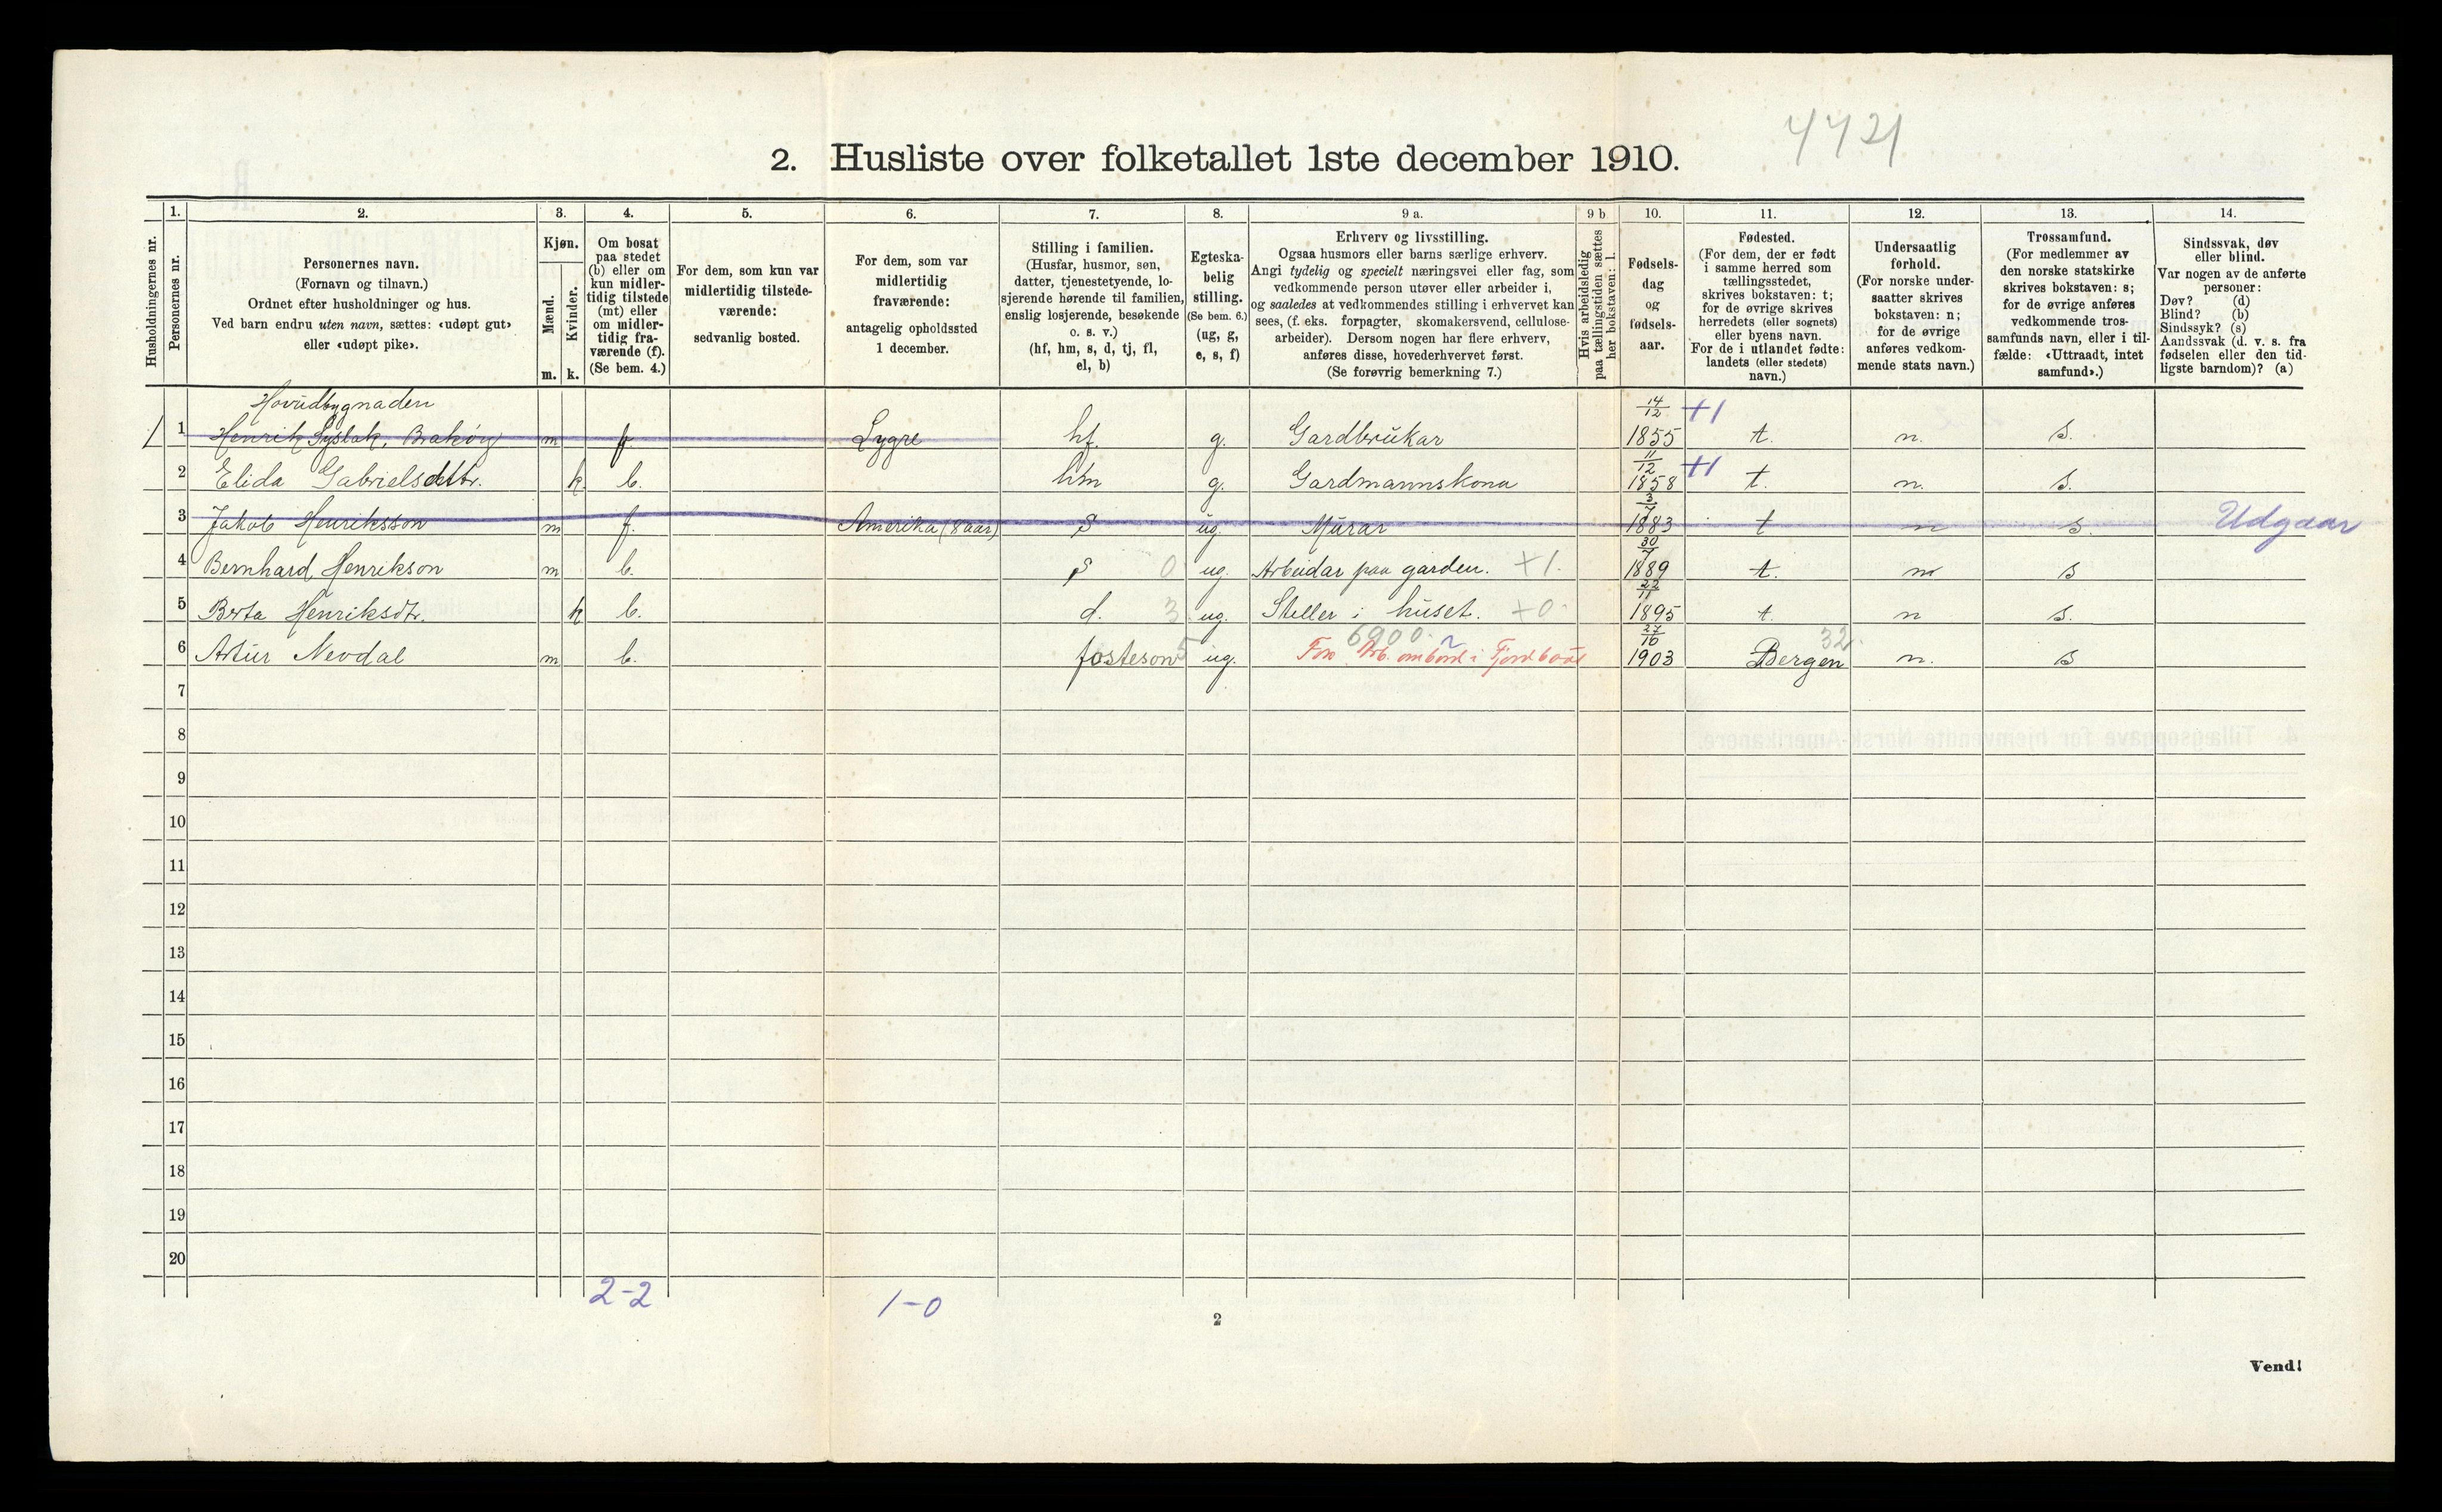 4421
2. Husliste over folketallet 1ste december 1910.
Husholdningernes nr.
1. 2. 3. 4. 5. 6. 7. 8. 9 a. 9 b 10. 11. 12. 13. 14.
Personernes nr.
Personernes navn.
(Fornavn og tilnavn.)
Ordnet efter husholdninger og hus.
Ved barn endnu uten navn, sættes: «udøpt gut»
eller «udøpt pike».
Kjøn.
Mænd.
Kvinder.
m. k.
Om bosat
paa stedet
(b) eller om
kun midler-
tidig tilstede
(mt) eller
om midler-
tidig fra-
værende (f).
(Se bem. 4.)
For dem, som kun var
midlertidig tilstede-
værende:
sedvanlig bosted.
For dem, som var
midlertidig
fraværende:
antagelig opholdssted
1 december.
Stilling i familien.
(Husfar, husmor, søn,
datter, tjenestetyende, lo-
sjerende hørende til familien,
enslig losjerende, besøkende
o. s. v.)
(hf, hm, s, d, tj, fl,
el, b)
Egteska-
belig
stilling.
(Se bem. 6.)
(ug, g,
e, s, f)
Erhverv og livsstilling.
Ogsaa husmors eller barns særlige erhverv.
Angi tydelig og specielt næringsvei eller fag, som
vedkommende person utøver eller arbeider i,
og saaledes at vedkommendes stilling i erhvervet kan
sees, (f. eks. forpagter, skomakersvend, cellulose-
arbeider). Dersom nogen har flere erhverv,
anføres disse, hovederhvervet først.
(Se forøvrig bemerkning 7.)
Hvis arbeidsledig
paa tællingstiden sættes
her bokstaven: l.
Fødsels-
dag
og
fødsels-
aar.
Fødested.
(For dem, der er født
i samme herred som
tællingsstedet,
skrives bokstaven: t;
for de øvrige skrives
herredets (eller sognets)
eller byens navn.
For de i utlandet fødte:
landets (eller stedets)
navn.)
Undersaatlig
forhold.
(For norske under-
saatter skrives
bokstaven: n;
for de øvrige
anføres vedkom-
mende stats navn.)
Trossamfund.
(For medlemmer av
den norske statskirke
skrives bokstaven: s;
for de øvrige anføres
vedkommende tros-
samfunds navn, eller i til-
fælde: «Uttraadt, intet
samfund».)
Sindssvak, døv
eller blind.
Var nogen av de anførte
personer:
Døv? (d)
Blind? (b)
Sindssyk? (s)
Aandssvak (d. v. s. fra
fødselen eller den tid-
ligste barndom)? (a)
Hovudbygnaden
14/12 +1
1 1 Henrik m f Lygre hf. g. Gardbrukar 1855 t. n. s.
11/12 +1
2 Elida Gabrielsdttr. k. b. hm g. Gardmannskona 1858 t. n. s.
3/7
3 Jakob Henriksson m f. Amerika (8 aar) s ug. Murar 1883 t n s. Udgaar
30/7
4 Bernhard Henrikson m b. s 0 ug. Arbeidar paa garden. +1. 1889 t. n s
22/11
5 Berta Henriksdtr. k b. d. 3 ug. Steller i huset. +0 1895 t. n s.
6900. 27/10 32
6 Artur Nevdal m b. fosteson 5 ug. Arb. ombord i Fjordbaat 1903 Bergen n. s
7
8
9
10
11
12
13
14
15
16
17
18
19
20
2-2 1-0
2
Vend!